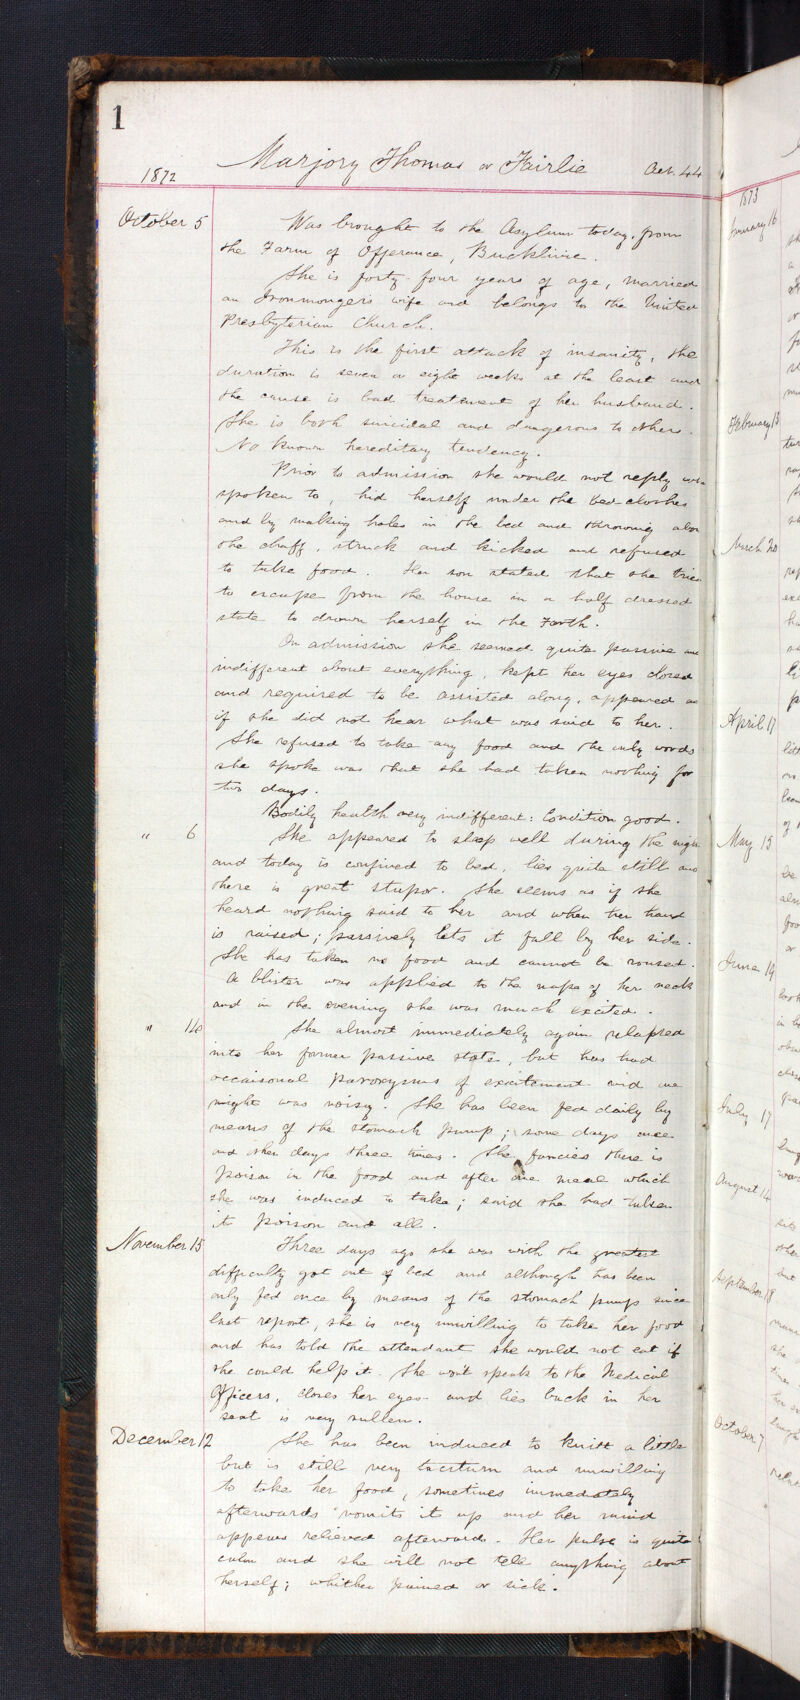 1
1872 Marjory Thomas or Fairlie Aet. 44
October 5 Was brought to the Asylum today, from
the Farm of Offerance, Bucklivie.
She is forty four years of age, married
an Ironmongers wife and belongs to the United
Presbyterian Church.
This is the first attack of insanity, the
duration is seven or eight weeks at the least and
the cause is bad treatment of her husband.
She is both suicidal and dangerous to others.
No known hereditary tendency.
Prior to admission she would not reply
spoken to, hid herself under the bed clothes
and by making holes in the bed and throwing
the chaff, struck and kicked and refused
to take food. Her son stated that she
to escape from the house in a half dressed
state to drown herself in the Forth.
On admission she seemed quite passive
indifferent about everything, kept her eyes closed
and required to be assisted along, appeared as
if she did not hear what was said to her.
She refused to take any food and the only words
she spoke was that she had taken nothing for
two days.
Bodily health very indifferent: Condition good.
" 6 She appeared to sleep well during the
and today is confined to bed, lies quite still
there is great stupor. She seems as if she
heard nothing said to her and when her hand
is raised; passively lets it fall by her side.
She has taken no food and cannot be roused.
A blister was applied to the nape of her neck
and in the evening she was much excited.
" 14 She almost immediately again relapsed
into her former passive state, but has had
occaisonal paroxysms of excitement and one
night was noisy. She has been fed daily by
means of the stomach pump; some days once
and other days three times. She fancies there is
poison in the food and after one meal which
she was induced to take; said she had taken
it poison and all.
November 15 Three days ago she was with the greatest
difficulty got out of bed and although has been
only fed once by means of the stomach pump since
last report, she is very unwilling to take her food
and has told the attendant she would not eat if
she could help it. She wont speak to the Medical
Officers, closes her eyes and lies back in her
seat is very sullen.
December 12 She has been induced to knitt a little
but is still very taciturn and unwilling
to take her food, sometimes immediately
afterwards vomits it up and her mind
appears relieved afterwards. Her pulse is quite
calm and she will not tell anything about
herself; whither pained or sick.
1873
January 16
February 13
March 20
April 17
May 15
June 14
July 17
August 14
September 18
October 7